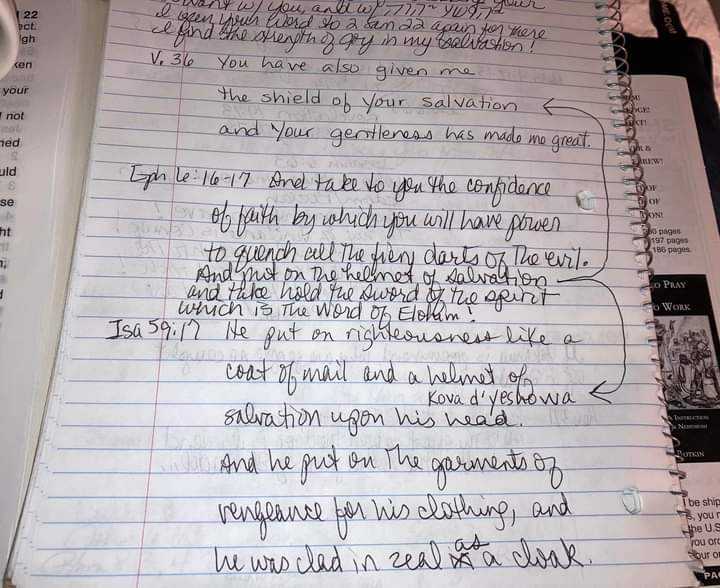 I open your Word to 2 Sam 22 again for there
I find the strength of God in my salvation!
V. 36 You have also given me
the shield of your salvation
and Your gentleness has made me great.
Eph 6:16-17 And take to you the confidence
of faith by which you will have power
to quench all the fiery darts of the evil.
And put on the helmet of salvation
and take hold the sword of the spirit
which is the Word of Elohim!
Isa 59:17 He put on righteousness like a
coat of mail and a helmet of
Kova d'yeshowa
salvation upon his head.
And he put on the garments of
vengeance for his clothing, and
he was clad in zeal as a cloak.
22
ect.
your
not
ned
uld
se
ht
197 pages
186 pages
O PRAY
O WORK
INSTRUCTION
BOTKIN
be ship
you r
the U.S